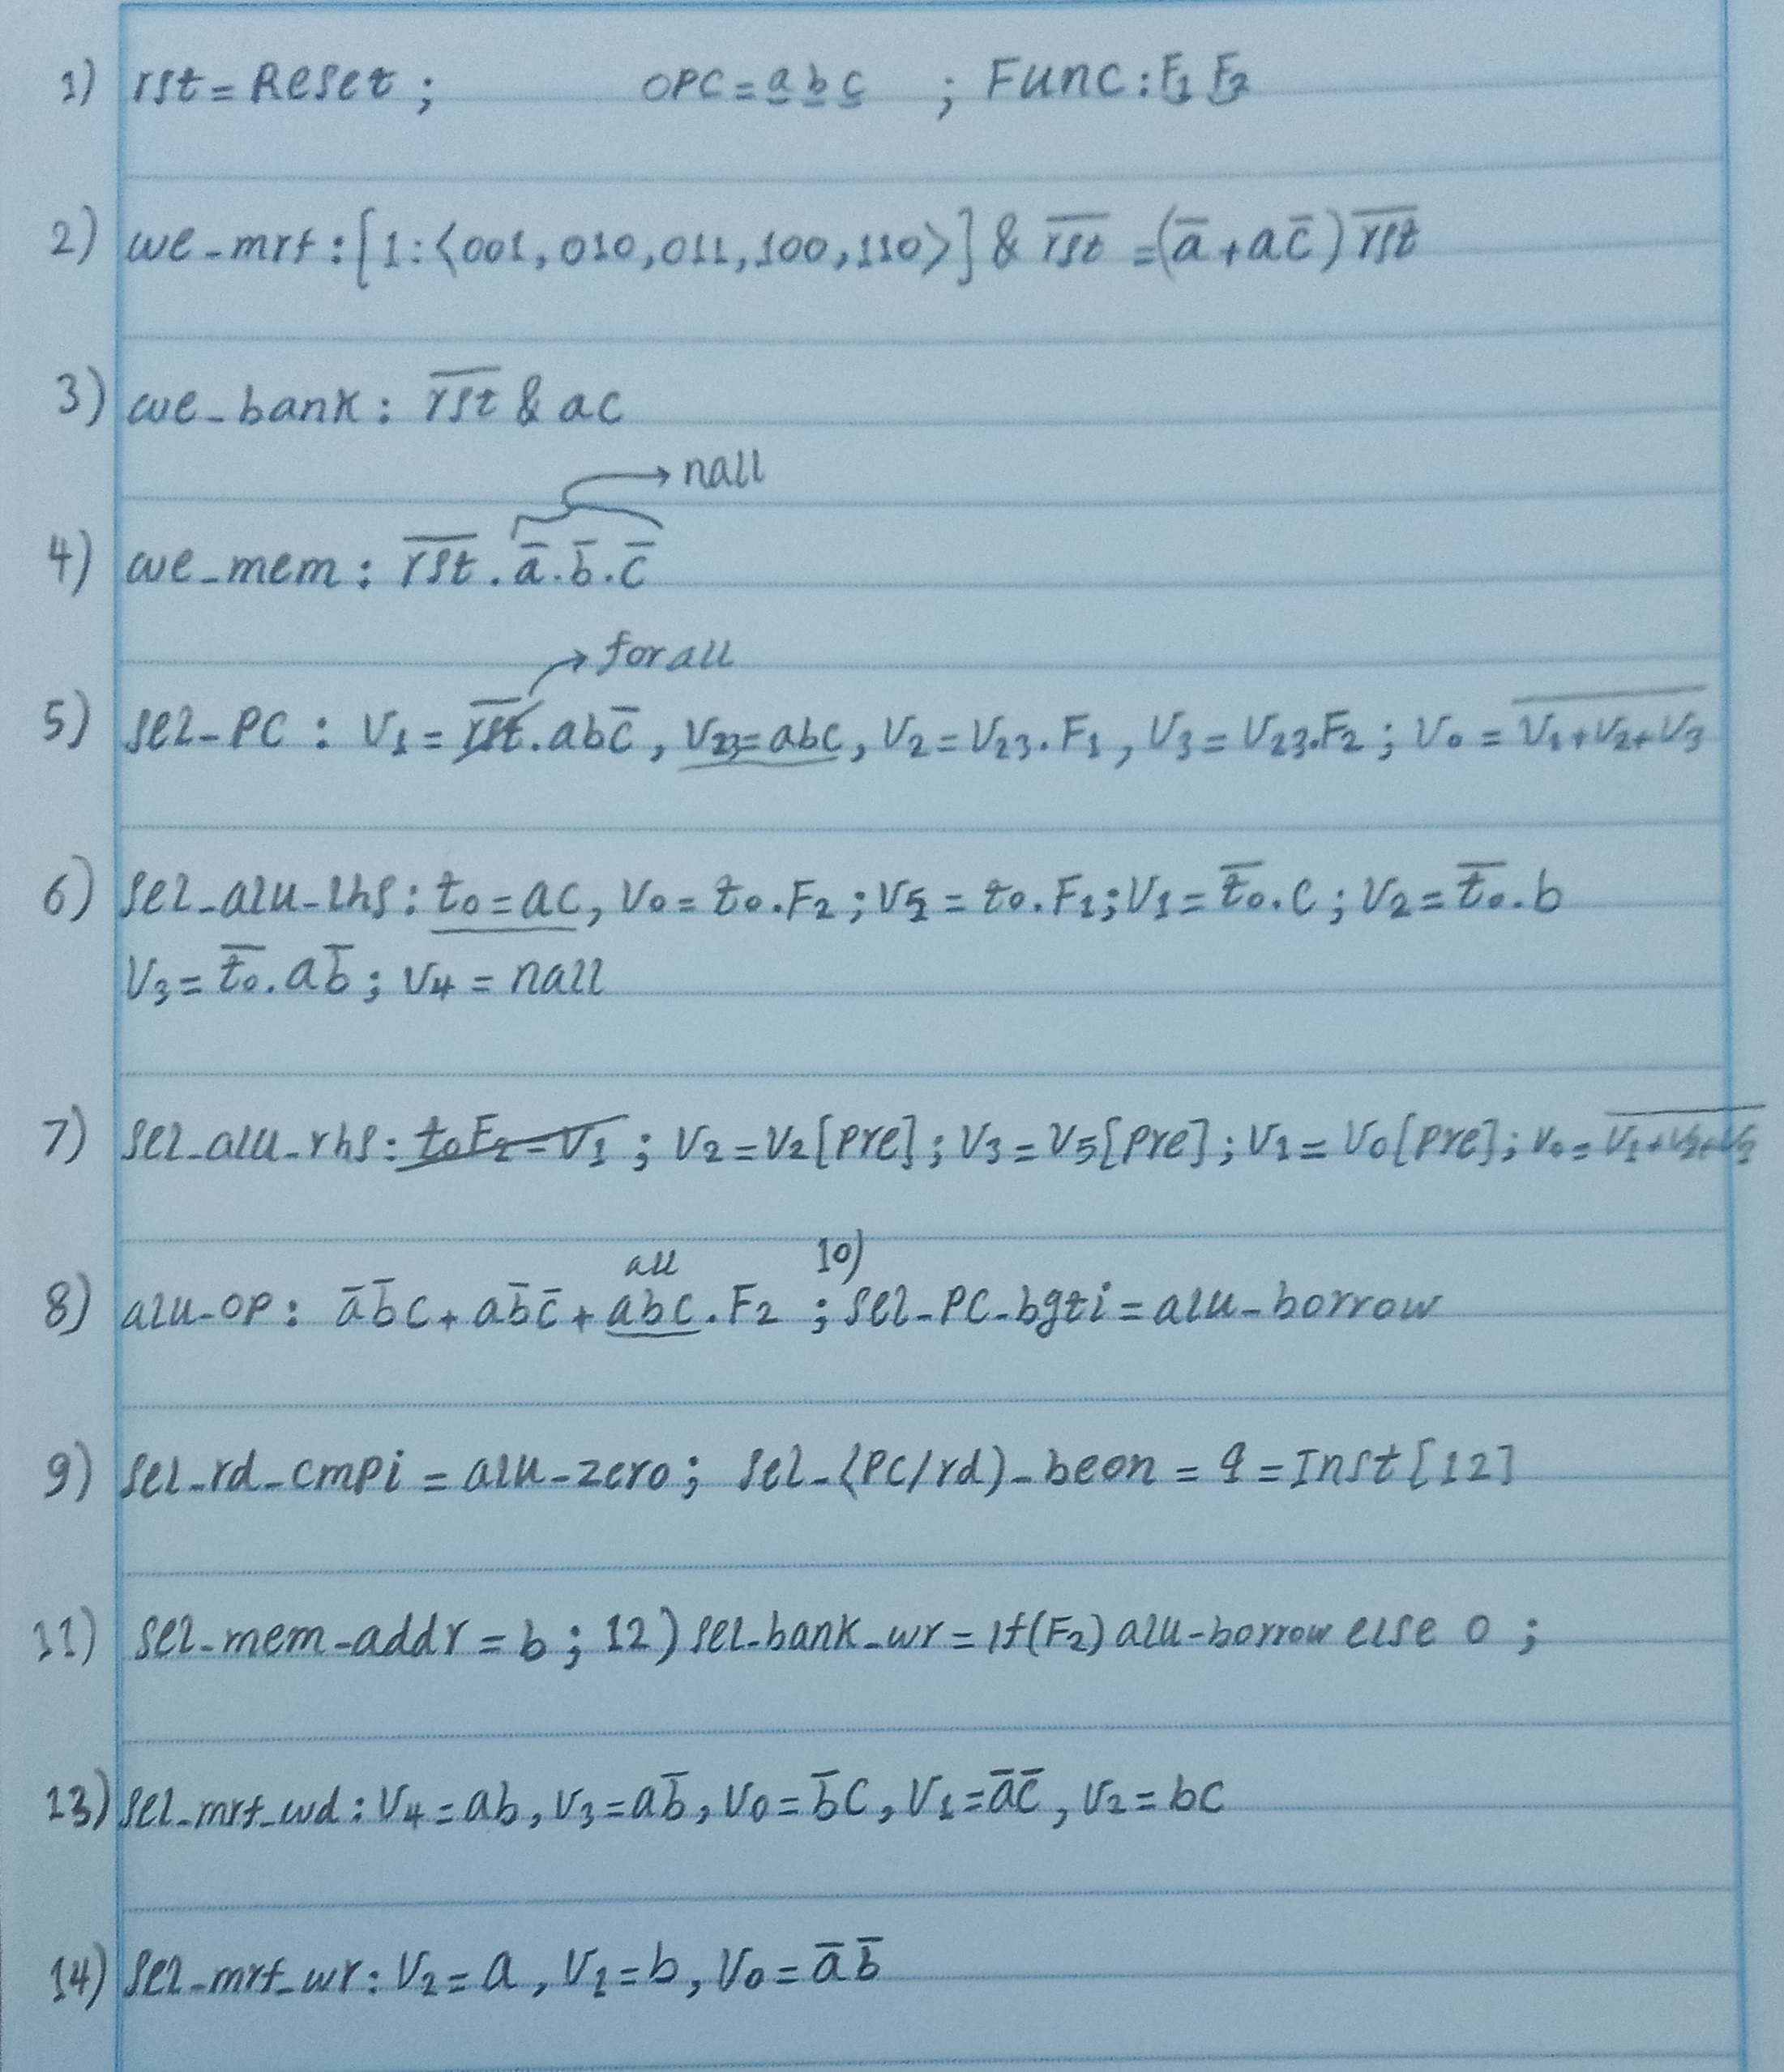 1) rst = Reset ; OPC = a̲ b̲ c̲ ; Func : F₁ F₂
2) we_mrf : [1:⟨001, 010, 011, 100, 110⟩] & r̅s̅t̅ = (a̅ + ac̅) r̅s̅t̅
3) we_bank : r̅s̅t̅ & ac
→ nall
4) we_mem : r̅s̅t̅ . a̅ . b̅ . c̅
→ for all
5) sel_PC : V₁ = r̅s̅t̅ . abc̅ , V₂₃ = abc , V₂ = V₂₃.F₁ , V₃ = V₂₃.F₂ ; V₀ = V̅₁̅+̅V̅₂̅+̅V̅₃̅
6) sel_alu_lhs : t₀ = ac , V₀ = t₀.F₂ ; V₅ = t₀.F₁ ; V₁ = t̅₀̅.c ; V₂ = t̅₀̅.b
V₃ = t̅₀̅.ab̅ ; V₄ = nall
7) sel_alu_rhs : t₀F₂ = V₁ ; V₂ = V₂[pre] ; V₃ = V₅[pre] ; V₁ = V₀[pre] ; V₀ = V̅₁̅+̅V̅₂̅+̅V̅₃̅
all 10)
8) alu_op : a̅b̅c + ab̅c̅ + abc.F₂ ; sel_PC_bgti = alu_borrow
9) sel_rd_cmpi = alu_zero ; sel_(PC/rd)_beon = q = Inst[12]
11) sel_mem_addr = b ; 12) sel_bank_wr = if(F₂) alu_borrow else 0 ;
13) sel_mrf_wd : V₄ = ab , V₃ = ab̅ , V₀ = b̅c , V₁ = a̅c̅ , V₂ = bc
14) sel_mrf_wr : V₂ = a , V₁ = b , V₀ = a̅b̅